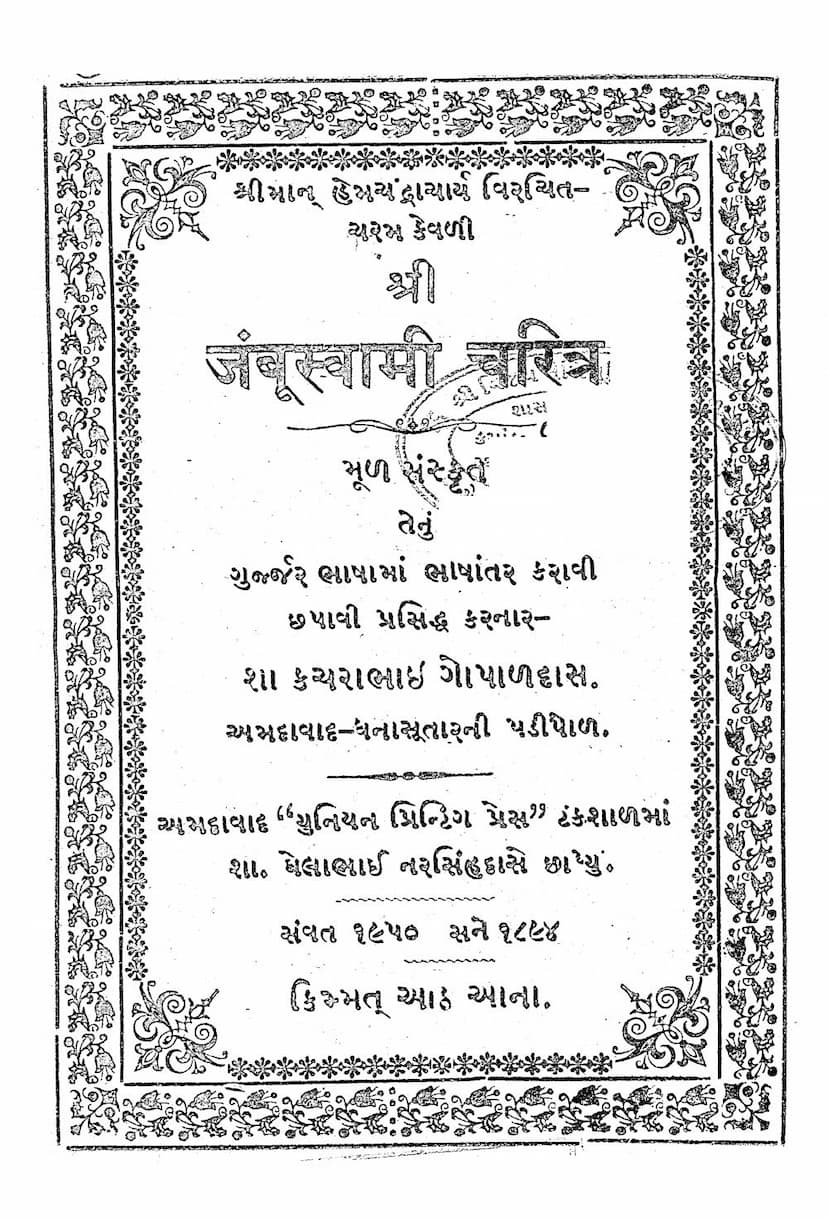 શ્રીમાન્ હેમચંદ્રાચાર્ય વિરચિત-
ચરમ કેવળી
શ્રી
जंबूस्वामी चरित्र
મૂળ સંસ્કૃત
તેનું
ગુર્જ્જર ભાષામાં ભાષાંતર કરાવી
છપાવી પ્રસિદ્ધ કરનાર-
શા કચરાભાઇ ગોપાળદાસ.
અમદાવાદ-ધનાસૂતારની પડીપોળ.
અમદાવાદ “યુનિયન પ્રિન્ટિગ પ્રેસ” ટંકશાળમાં
શા. ઘેલાભાઈ નરસિંહદાસે છાપ્યું.
સંવત ૧૯૫૦ સને ૧૮૯૪
કિમ્મત્ આઠ આના.